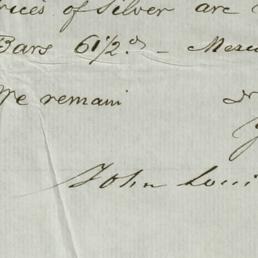 rices of Silver are
Bars 61 1/2 d - Mex
We remain
John Loui